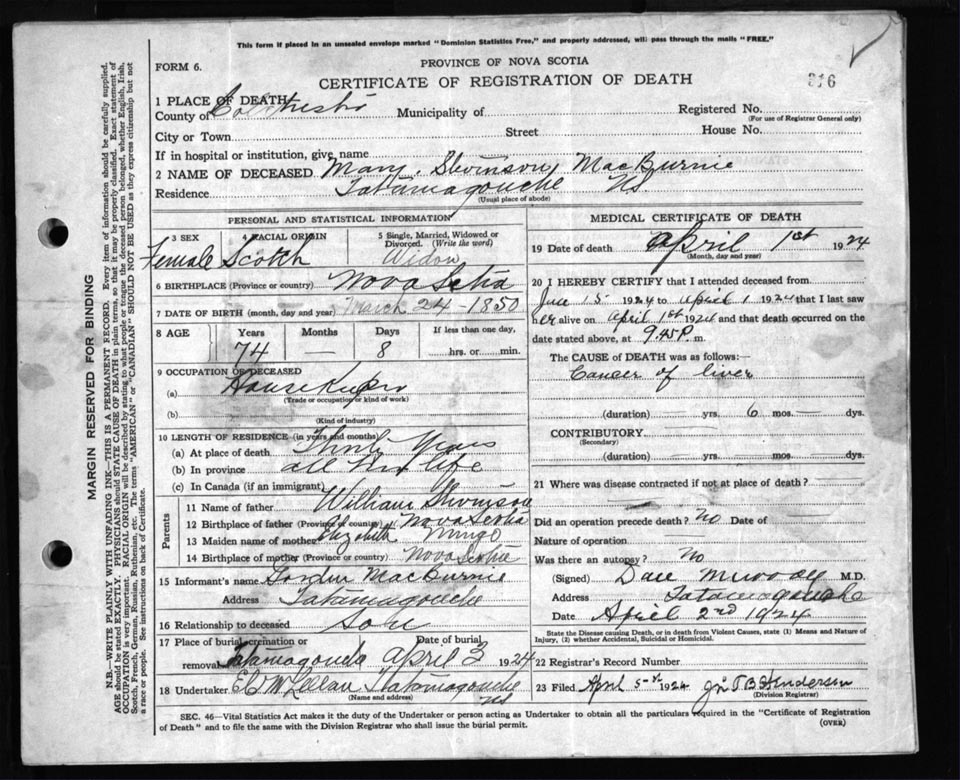 This form if placed in an unsealed envelope marked "Dominion Statistics Free," and properly addressed, will pass through the mails "FREE."
FORM 6.
PROVINCE OF NOVA SCOTIA
CERTIFICATE OF REGISTRATION OF DEATH
316
1 PLACE OF DEATH
County of Colchester Municipality of Registered No.
(For use of Registrar General only)
City or Town Street House No.
If in hospital or institution, give name
2 NAME OF DECEASED Mary Stvinson MacBurnie
Residence Tatamagouche NS.
(Usual place of abode)
PERSONAL AND STATISTICAL INFORMATION
3 SEX 4 RACIAL ORIGIN 5 Single, Married, Widowed or Divorced. (Write the word)
Female Scotch Widow
6 BIRTHPLACE (Province or country) Nova Scotia
7 DATE OF BIRTH (month, day and year) March 24 - 1850
8 AGE Years Months Days If less than one day,
74 — 8 hrs. or min.
9 OCCUPATION OF DECEASED
(a) House Keeper
(Trade or occupation or kind of work)
(b)
(Kind of industry)
10 LENGTH OF RESIDENCE (in years and months)
(a) At place of death Thirty Years
(b) In province all her life
(c) In Canada (if an immigrant)
Parents
11 Name of father William Stvinson
12 Birthplace of father (Province or country) Nova Scotia
13 Maiden name of mother Elizabeth Mingo
14 Birthplace of mother (Province or Country) Nova Scotia
15 Informant's name Gordon MacBurnie
Address Tatamagouche
16 Relationship to deceased Son
17 Place of burial, cremation or removal Tatamagouche Date of burial April 3 1924
18 Undertaker McLellan Tatamagouche NS
(Name and address)
MEDICAL CERTIFICATE OF DEATH
19 Date of death April 1st 1924
(Month, day and year)
20 I HEREBY CERTIFY that I attended deceased from
15 1924 to April 1 1924 that I last saw
her alive on April 1st 1924 and that death occurred on
date stated above, at 9.45 P. m.
The CAUSE of DEATH was as follows:—
Cancer of liver
(duration) — yrs. 6 mos. — dys.
CONTRIBUTORY.
(Secondary)
(duration) yrs. mos. dys.
21 Where was disease contracted if not at place of death?
Did an operation precede death? No Date of
Nature of operation
Was there an autopsy? No
(Signed) Dan Murray M.D.
Address Tatamagouche
Date April 2nd 1924
State the Disease causing Death, or in death from Violent Causes, state (1) Means and Nature of
Injury, (2) whether Accidental, Suicidal or Homicidal.
22 Registrar's Record Number
23 Filed April 5 1924 J. B. Henderson
(Division Registrar)
SEC. 46—Vital Statistics Act makes it the duty of the Undertaker or person acting as Undertaker to obtain all the particulars required in the "Certificate of Registration
of Death" and to file the same with the Division Registrar who shall issue the burial permit.
(OVER)
MARGIN RESERVED FOR BINDING
N.B.—WRITE PLAINLY WITH UNFADING INK—THIS IS A PERMANENT RECORD. Every item of information should be carefully supplied.
AGE should be stated EXACTLY. PHYSICIANS should STATE CAUSE OF DEATH in plain terms, so that it may be properly classified. Exact statement of
OCCUPATION is very important. RACIAL ORIGIN will be described by stating to what people or tongue the deceased person belonged, whether English, Irish,
Scotch, French, German, Russian, Ruthenian, etc. The terms "AMERICAN" or "CANADIAN" SHOULD NOT BE USED as they express citizenship but not
a race or people. See instructions on back of Certificate.